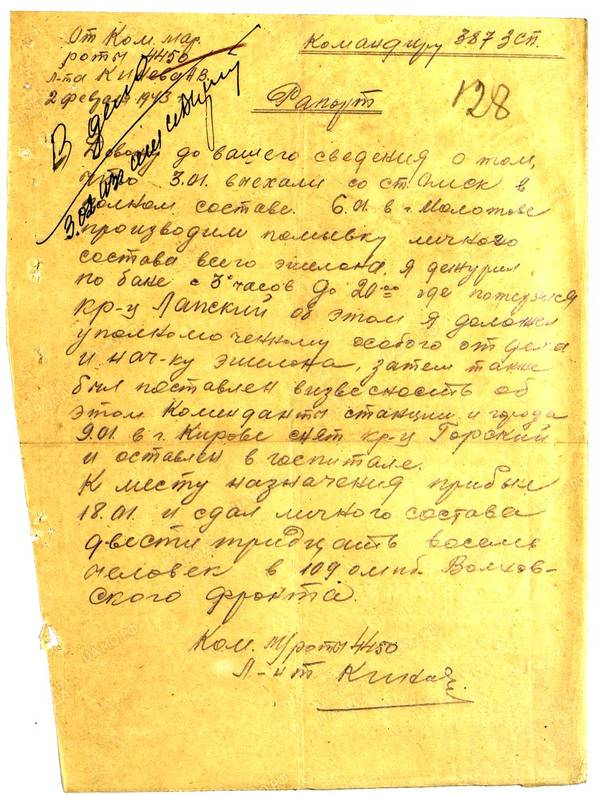 От Ком. мар.
роты 4450
Л-та
2 февраля 1943
Командиру 387 ЗСП.
128
Рапорт
В дело
3.02
Довожу до вашего сведения о том,
что 3.01. выехали со ст. Омск в
полном составе. 6.01 в г. Молотове
производим помывку личного
состава всего эшелона. Я дежурил
по бане с 3 часов до 20 00 где потерялся
кр-ц Лапский об этом я доложил
уполномоченному особого отдела
и нач-ку эшелона, затем также
был поставлен визвесность об
этом Коменданты станции и города
9.01 в г. Кирове снят кр-ц Горский
и оставлен в госпитале.
К месту назначения прибыл
18.01. и сдал личного состава
двести тридцать восемь
человек в 109 Волхов-
ского фронта.
Ком. м/роты 4450
Л-нт